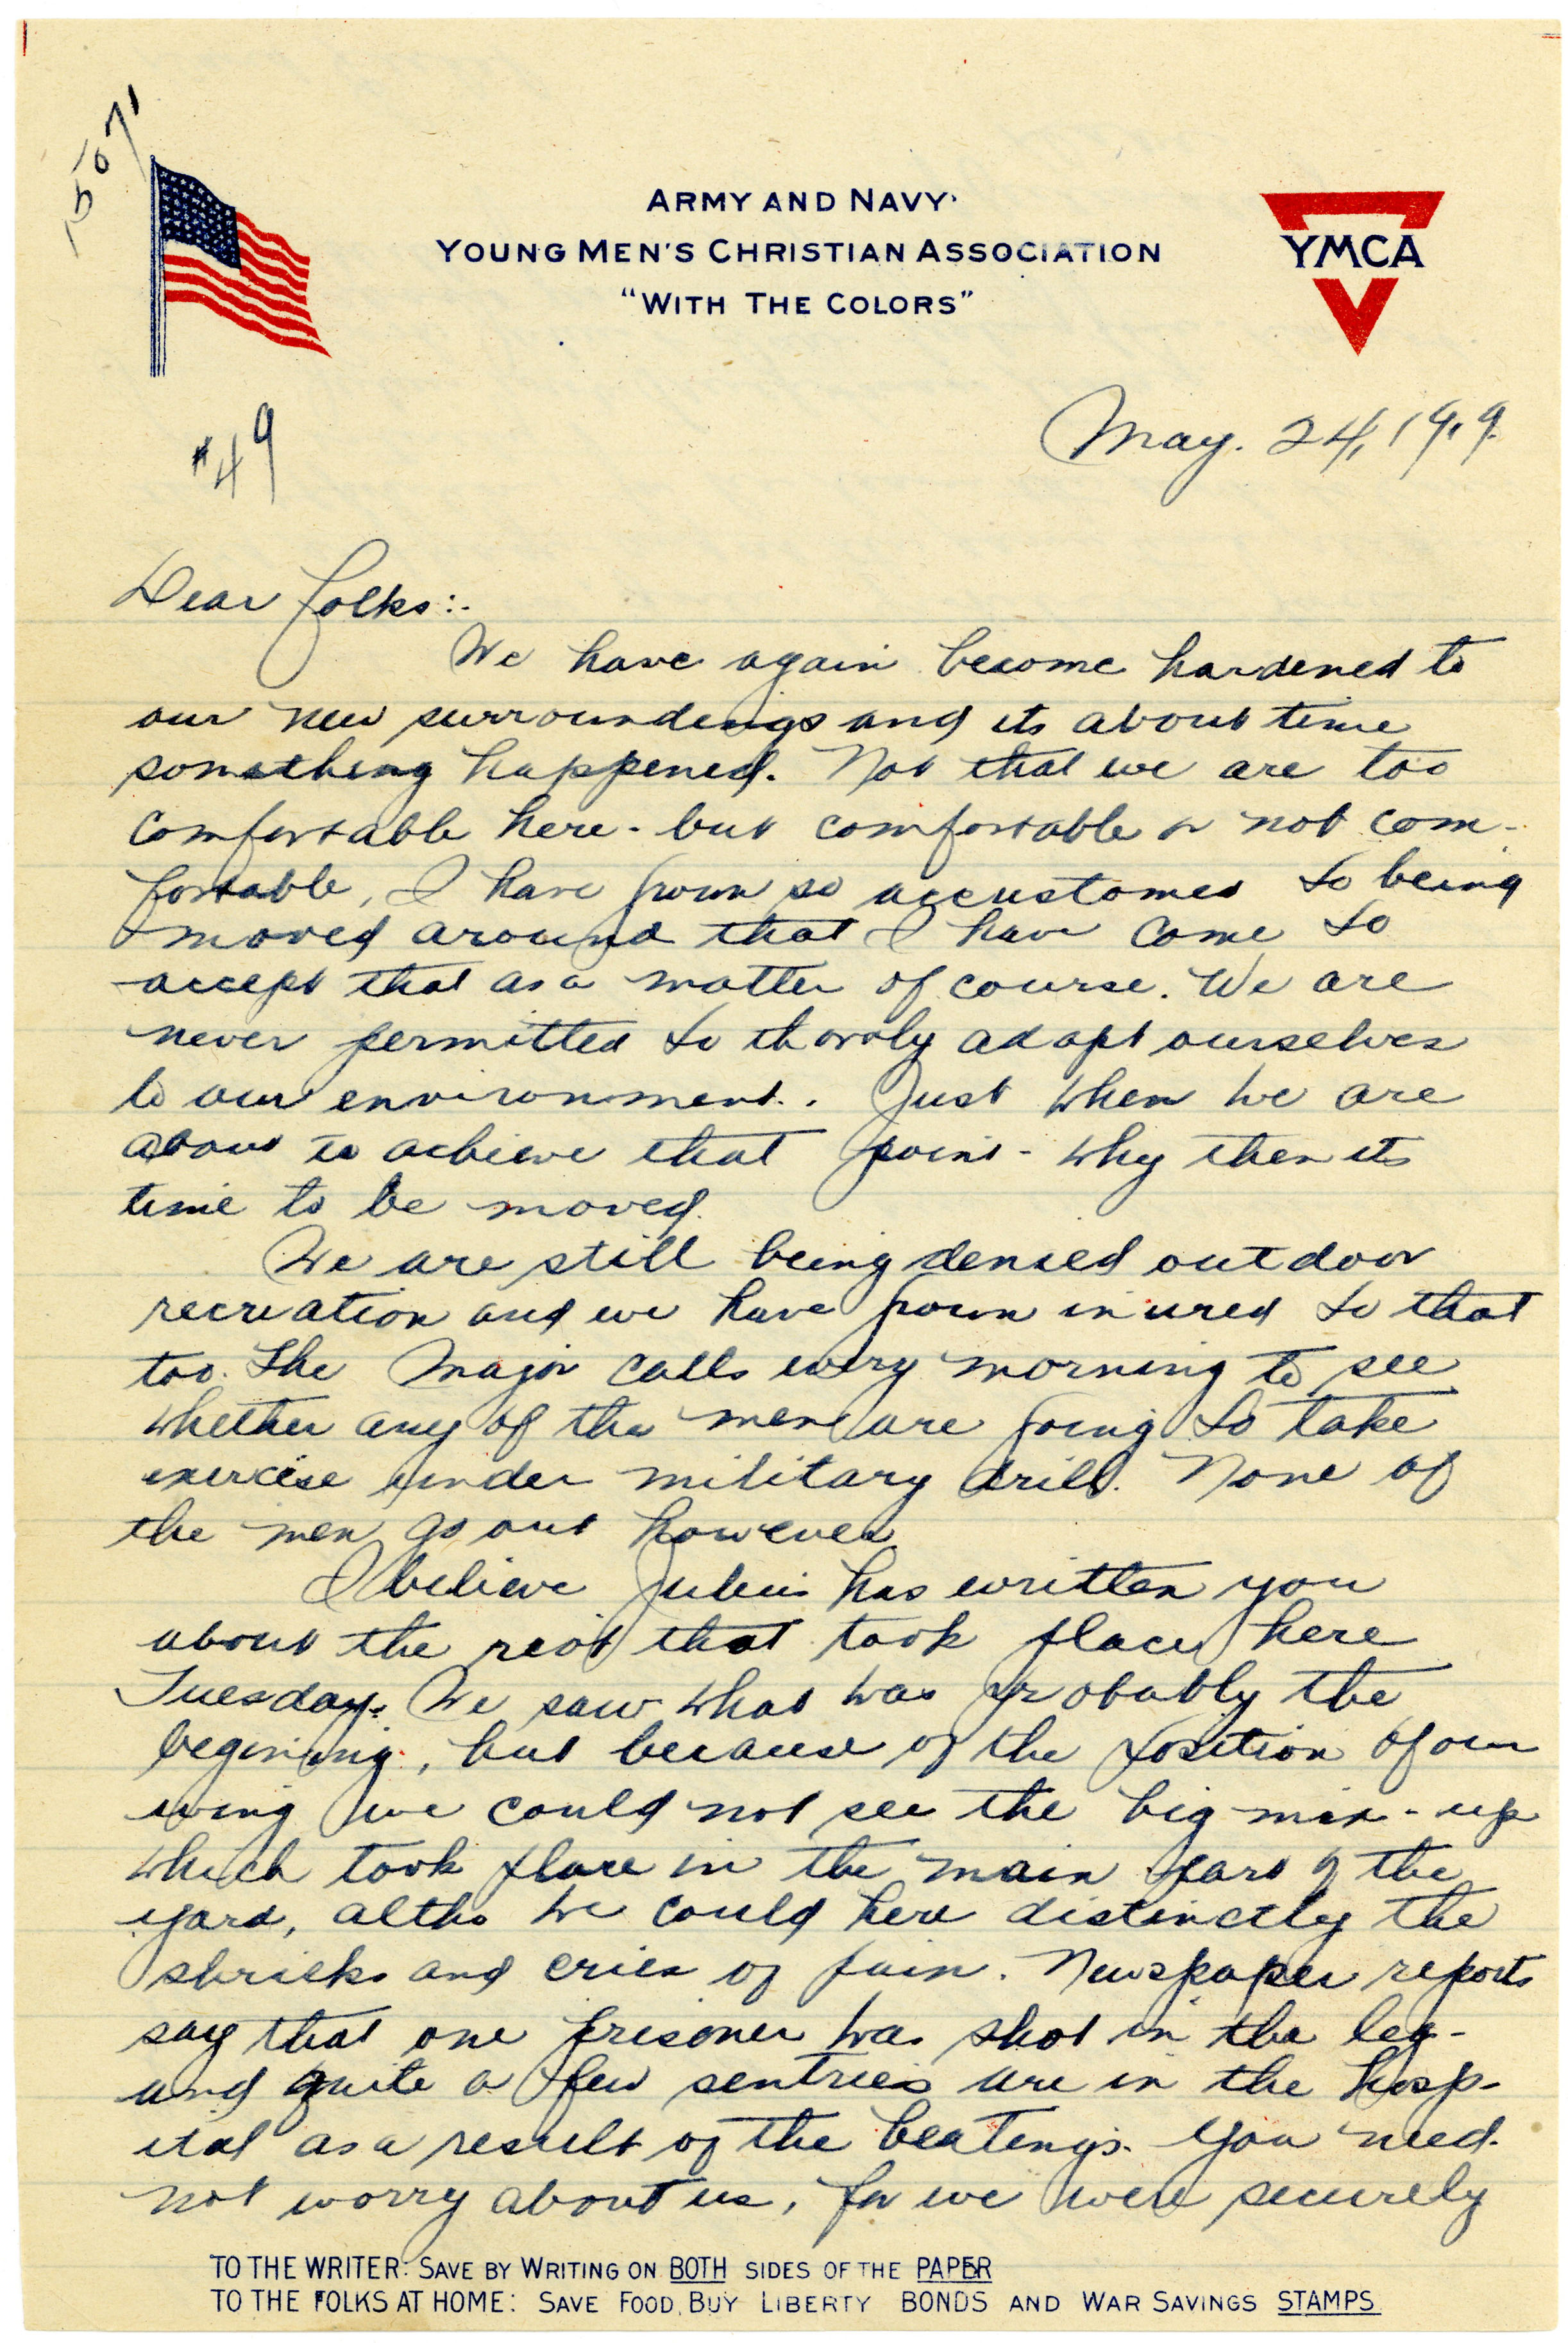 15071
ARMY AND NAVY
YOUNG MEN'S CHRISTIAN ASSOCIATION
"WITH THE COLORS"
YMCA
#49
May. 24, 1919.
Dear folks:-
We have again become hardened to
our new surroundings and its about time
something happened. Not that we are too
comfortable here - but comfortable or not com-
fortable, I have grown so accustomed to being
moved around that I have come to
accept that as a matter of course. We are
never permitted to thoroly adapt ourselves
to our environment. Just when we are
about to achieve that point - why then its
time to be moved.
We are still being denied outdoor
recreation and we have grown inured to that
too. The Major calls every morning to see
whether any of the men are going to take
exercise under military drill. None of
the men go out however.
I believe Julius has written you
about the riot that took place here
Tuesday. We saw what was probably the
begining, but because of the position of our
wing we could not see the big mix-up
which took place in the main part of the
yard, altho we could here distinctly the
shrieks and cries of pain. Newspaper reports
say that one prisoner was shot in the leg -
and quite a few sentries are in the hosp-
ital as a result of the beatings. You need
not worry about us, for we were securely
TO THE WRITER: SAVE BY WRITING ON BOTH SIDES OF THE PAPER
TO THE FOLKS AT HOME: SAVE FOOD, BUY LIBERTY BONDS AND WAR SAVINGS STAMPS